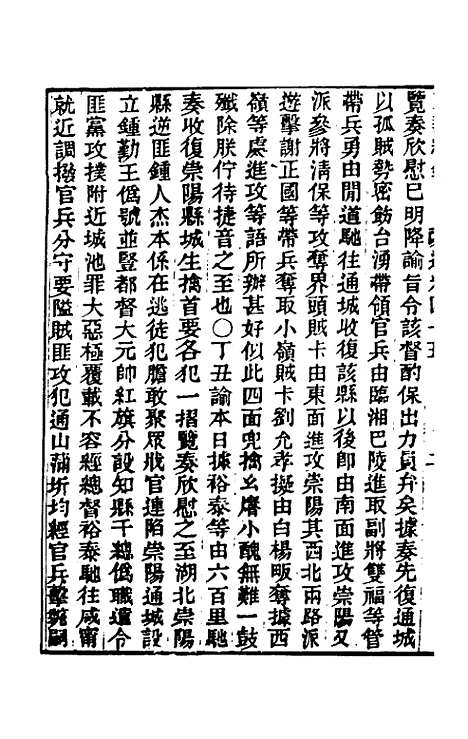 覽奏欣慰已明降諭旨令該督酌保出力員弁矣據奏先復通城
以孤賊勢密飭台湧帶領官兵由臨湘巴陵進取副將雙福等管
帶兵勇由間道馳往通城收復該縣以後即由南面進攻崇陽又
派參將清保等攻奪界頭賊卡由東面進攻崇陽其西北兩路派
遊擊謝正國等帶兵奪取小嶺賊卡劉允孝擬由白楊畈奪據西
嶺等處進攻等語所辦甚好似此四面兜擒么麿小醜無難一鼓
殲除朕佇待捷音之至也〇丁丑諭本日據裕泰等由六百里馳
奏收復崇陽縣城生擒首要各犯一摺覽奏欣慰之至湖北崇陽
縣逆匪鍾人杰本係在逃徒犯膽敢聚眾戕官連陷崇陽通城設
立鍾勤王僞號並豎都督大元帥紅旗分設知縣千總僞職遣令
匪黨攻撲附近城池罪大惡極覆載不容經總督裕泰馳往咸甯
就近調撥官兵分守要隘賊匪攻犯通山蒲圻均經官兵擊斃嗣